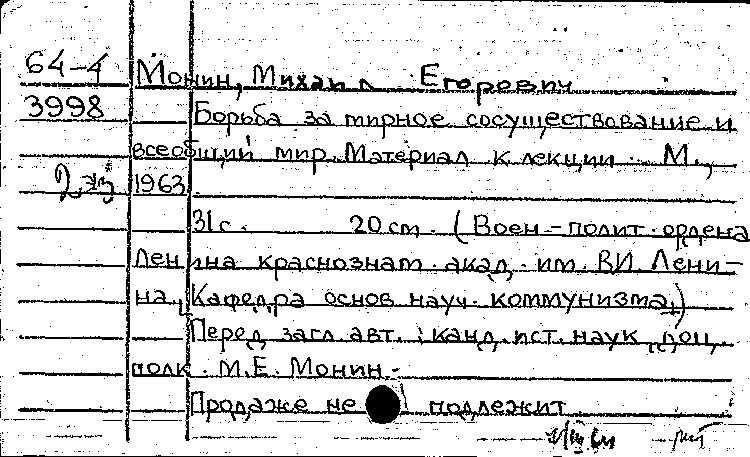 64-4 Монин, Михаил Егорович
3998 Борьба за мирное сосуществование и
всеобщий мир. Материал к лекции. М.,
2 экз 1963.
31 с. 20 см. (Воен-полит. ордена
Ленина краснознам. акад. им. В.И. Лени-
на, Кафедра основ науч. коммунизма)
Перед загл. авт.: канд. ист. наук, доц.
полк. М.Е. Монин.-
Продаже не подлежит